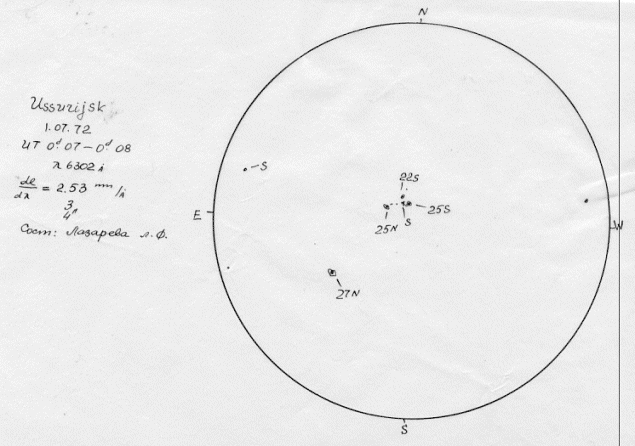 Ussurijsk
1.07.72
UT 0ᵈ.07 – 0ᵈ.08
λ 6302 Å
dl/dλ = 2.53 mm/Å
3
4"
Сост: Лазарева Л.Ф.
N
S
22S
E
25N
S
25S
W
27N
S